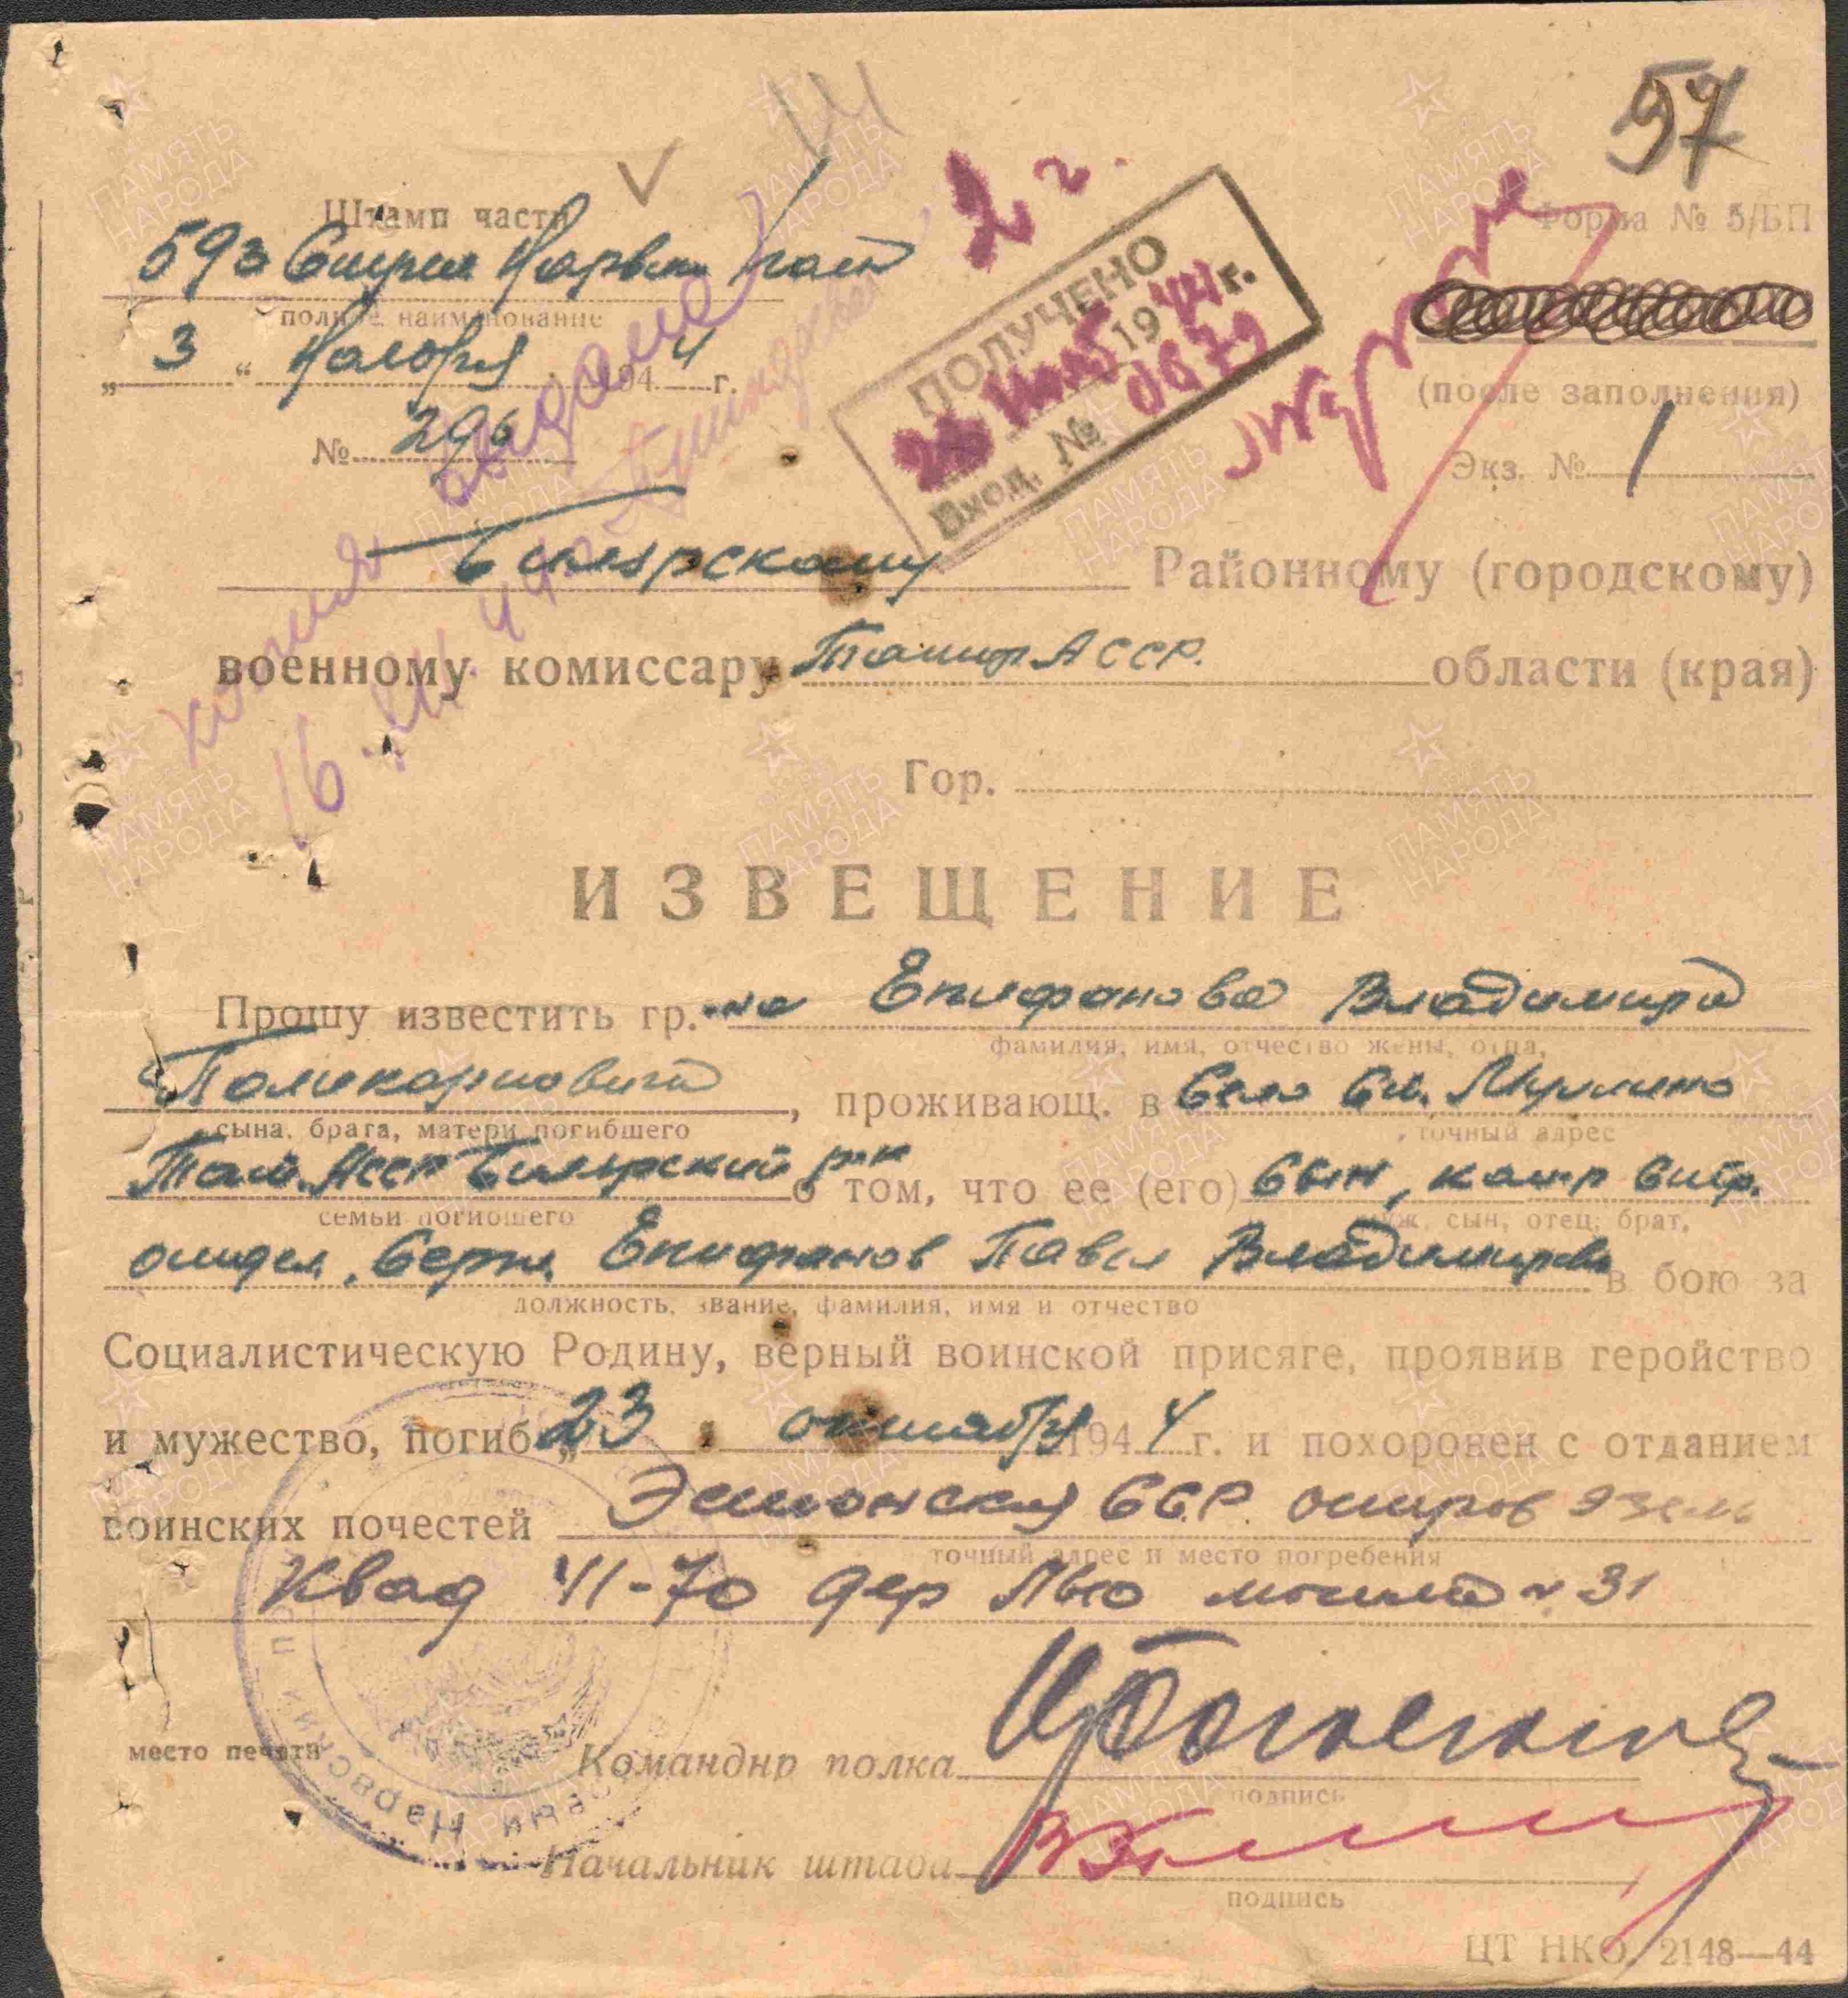 57
Штамп части
Форма № 5/БП
593 Стрел Нарвски полк
полное наименование
„ 3 “ Ноября 1944 г.
(после заполнения)
№ 296
Экз. № 1
ПОЛУЧЕНО
1944 г.
Вход. №
копия выдана
16. XII. 44
Билярскому Районному (городскому)
военному комиссару Татар АССР. области (края)
Гор.
ИЗВЕЩЕНИЕ
Прошу известить гр.-на Епифанова Владимира
фамилия, имя, отчество жены, отца,
Поликарповича, проживающ. в село Ст.
сына, брата, матери погибшего
точный адрес
Тат. АССР Билярский р-н о том, что ее (его) сын, ком-р стр.
семьи погибшего
муж, сын, отец, брат,
отдел. Серж. Епифанов Павел Владимиров в бою за
должность, звание, фамилия, имя и отчество
Социалистическую Родину, верный воинской присяге, проявив геройство
и мужество, погиб „23 октября 1944 г. и похоронен с отданием
воинских почестей Эстонская ССР. остров Эзель
точный адрес и место погребения
Квад 41-70 дер Лыо могила № 31
место печати
Командир полка
подпись
Начальник штаба
подпись
ЦТ НКО. 2148—44
ПАМЯТЬ НАРОДА